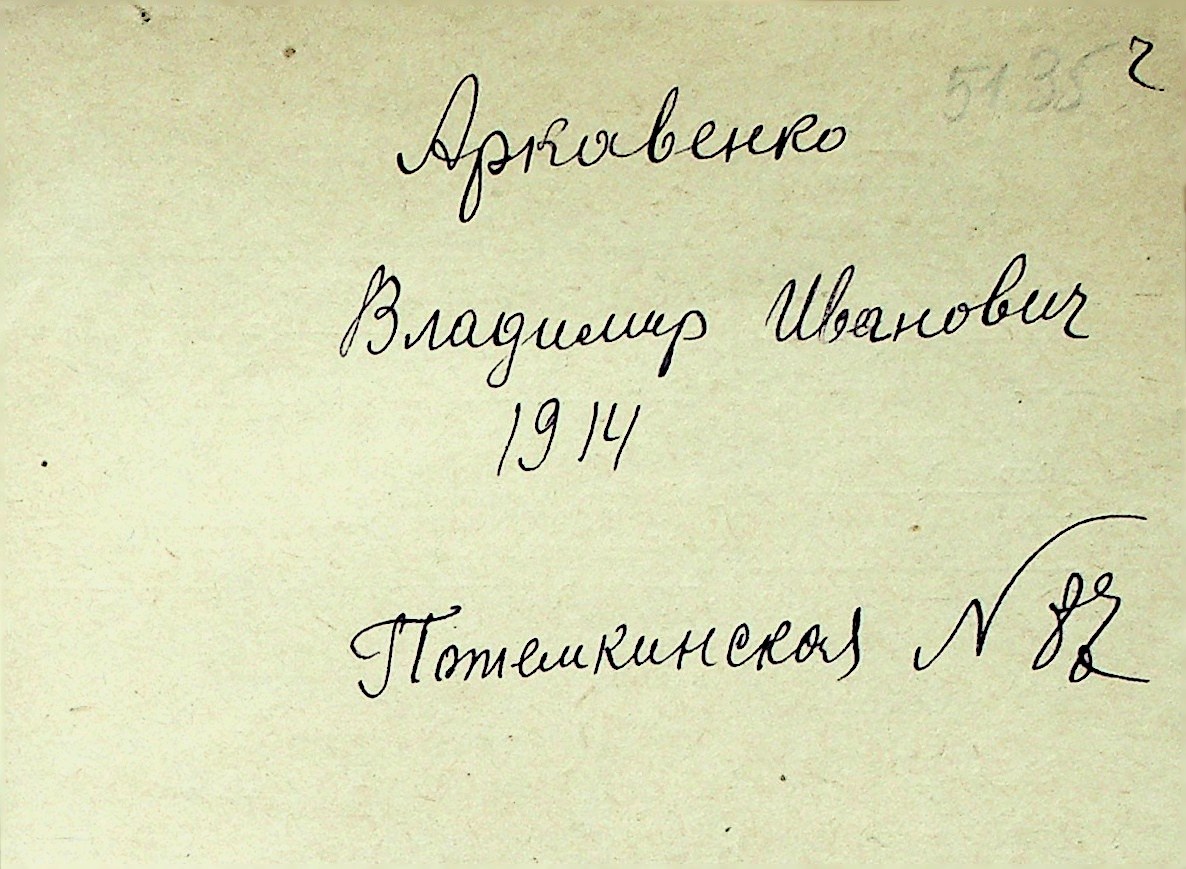 5135 ч
Аркавенко
Владимир Иванович
1914
Потемкинская N 82